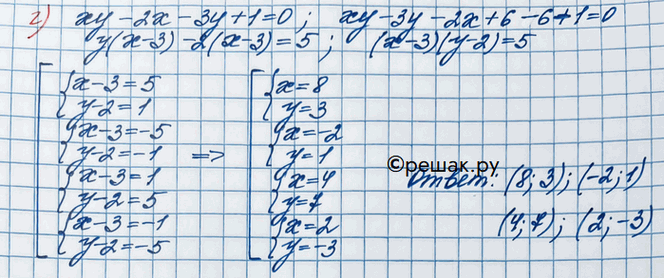 г) xy-2x-3y+1=0; xy-3y-2x+6-6+1=0
y(x-3)-2(x-3)=5; (x-3)(y-2)=5
x-3=5
y-2=1
x-3=-5
y-2=-1
x-3=1
y-2=5
x-3=-1
y-2=-5
=>
x=8
y=3
x=-2
y=1
x=4
y=7
x=2
y=-3
©решак.ру
Ответ: (8;3); (-2;1)
(4;7); (2;-3)